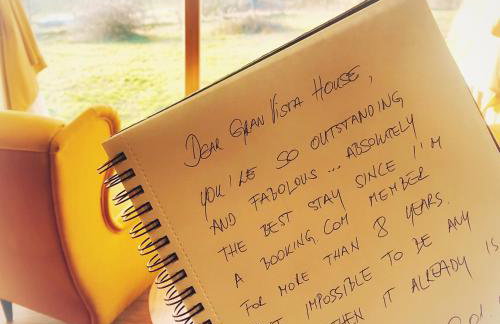 DEAR GRAN VISTA HOUSE,
YOU'RE SO OUTSTANDING
AND FABOLOUS... ABSOLUTELY
THE BEST STAY SINCE I'M
A BOOKING.COM MEMBER
FOR MORE THAN 8 YEARS.
IMPOSSIBLE TO BE ANY
THEN IT ALREADY IS